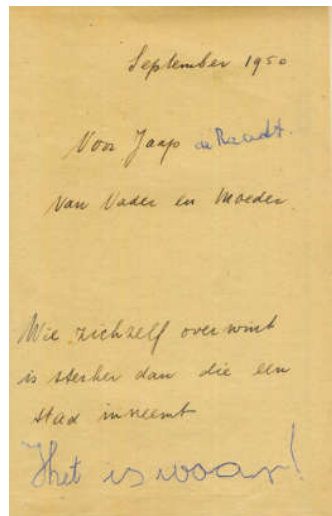 September 1950
Voor Jaap de Raadt.
Van Vader en Moeder.
Wie zichzelf overwint
is sterker dan die een
stad inneemt
Het is waar!